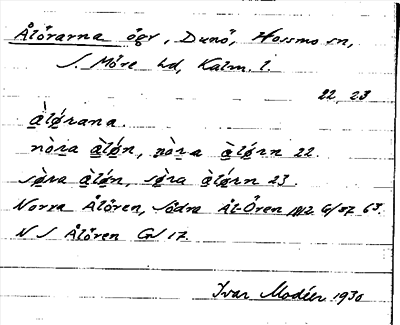 Ålörarna ögr, Dunö, Hossmo sn,
S. Möre hd, Kalm. l.
22, 23
àlø̀rana.
nòra àlǿn, nòra àlǿrn 22.
sø̀ra àlǿn, sø̀ra àlǿrn 23.
Norra Ålören, Södra Ål-Ören 1812 63.
N S Ålören GV 17.
Ivar Modéer 1930